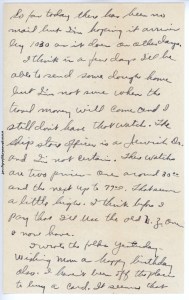 So far today there has been no
mail but I'm hoping it arrives
by 1530 as it does on other days.
I think in a few days I'll be
able to send some dough home
but I'm not sure when the
travel money will come and I
still don't have that watch. The
ships store officer is a Jewish Dr.
and I'm not certain. The watches
are two prices - one around 30
and the next up to 77. That seems
a little high. I think before I
pay that I'll use the old one
I now have.
I wrote the folks yesterday
wishing mom a happy birthday
also. I haven't been off the place
to buy a card. It seems that